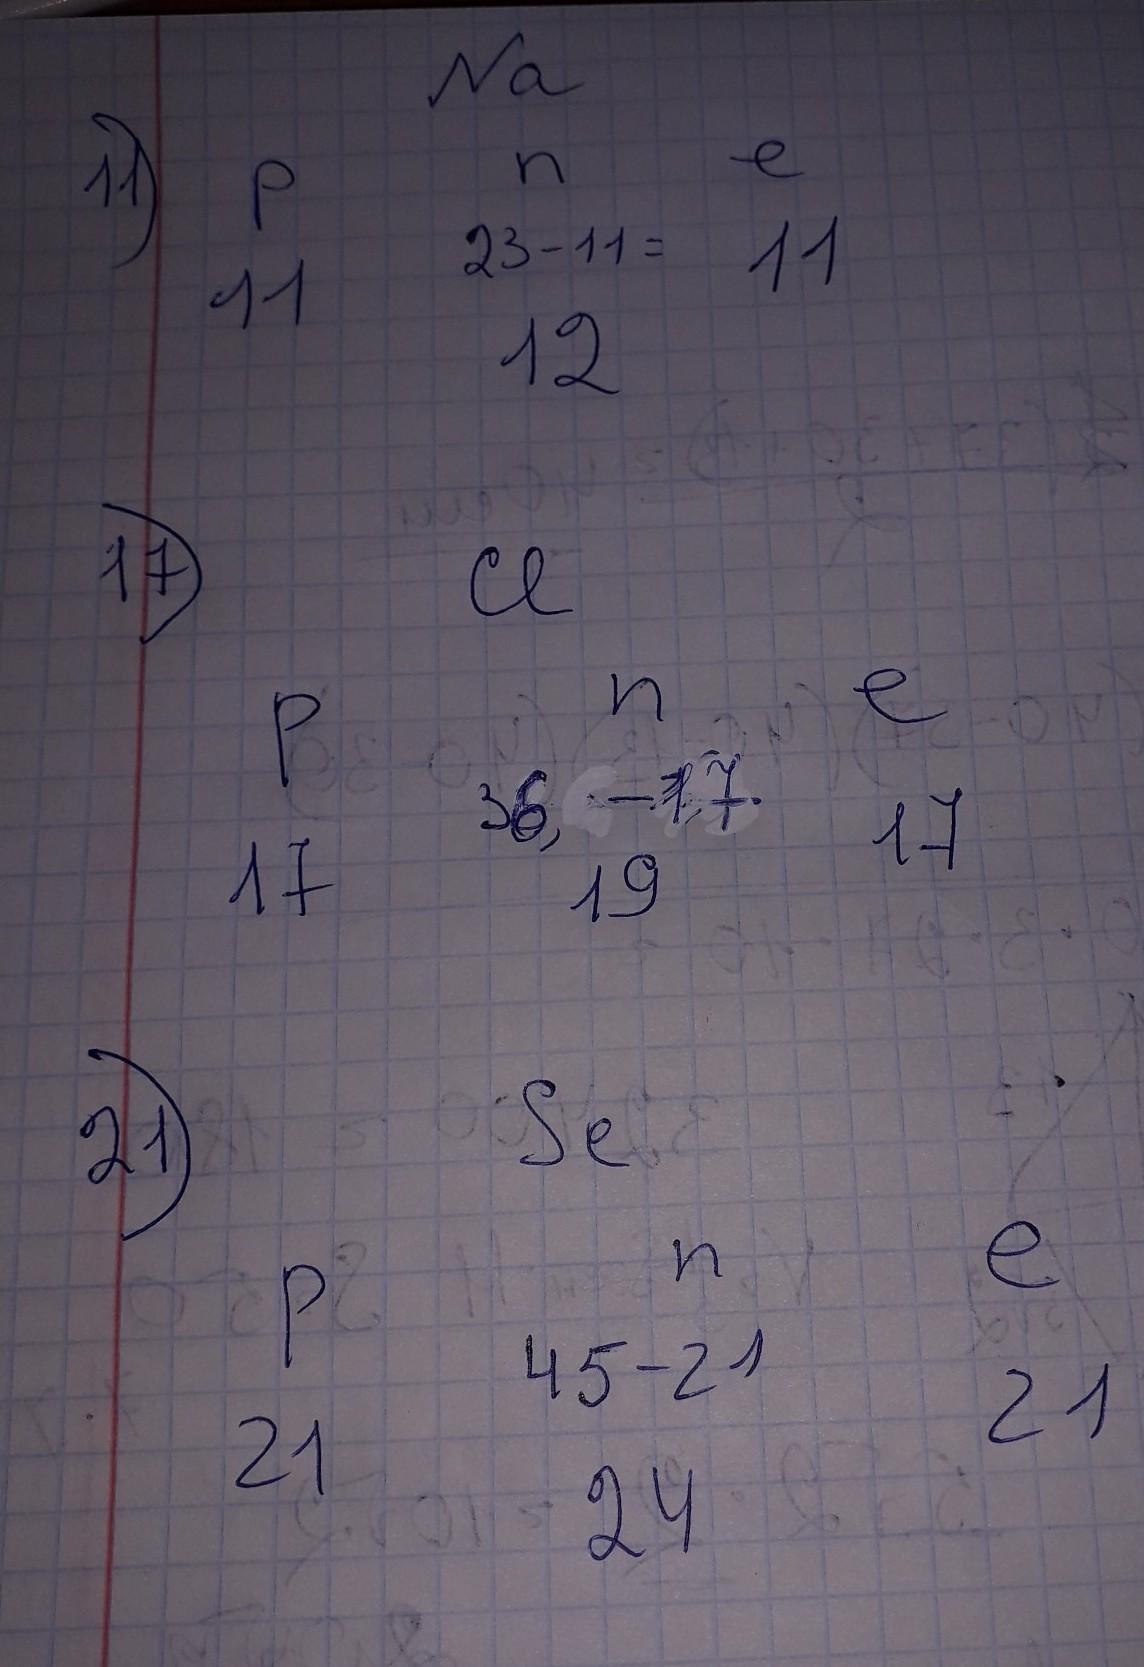 Na
11) p n e
11 23-11= 11
12
17) Cl
p n e
17 36, -17 17
19
21) Se
p n e
21 45-21 21
24